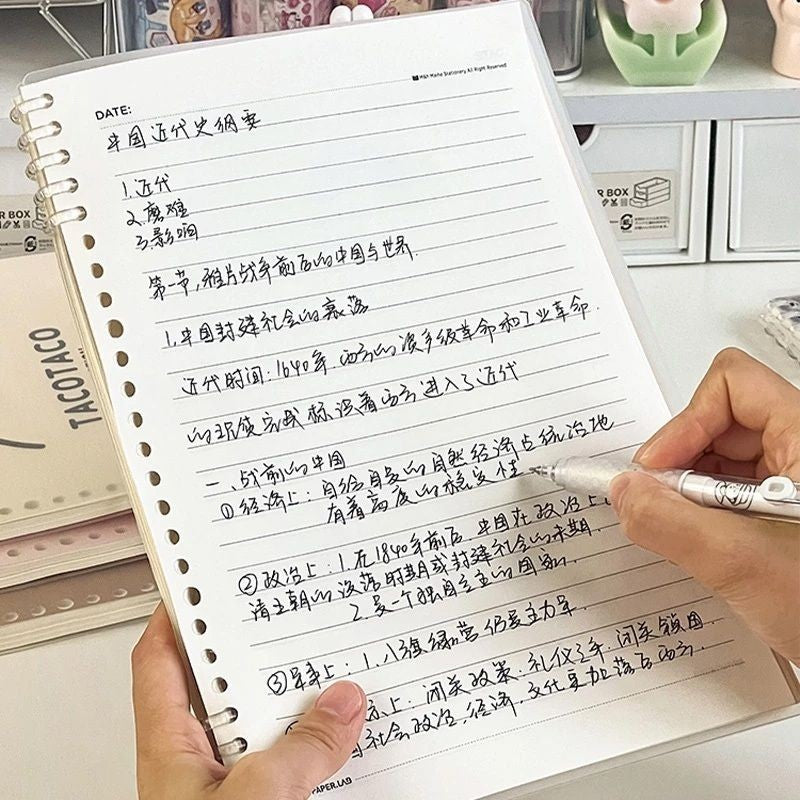 M&H Maihe Stationery All Right Reserved
DATE:
中国近代史纲要
1.近代
2.磨难
3.影响
第一节,鸦片战争前后的中国与世界.
1.中国封建社会的衰落
近代时间:1640年.西方的资产级革命和工业革命.
的现续完成标识着西方进入了近代
一、战前的中国
①经济上:自给自足的自然经济占统治地
有着高度的稳定性
②政治上:1.在1840年前后.中国在政治上
清王朝的没落时期或封建社会的末期.
2.是一个独自主主的国家.
③军事上:1.八旗绿营仍是主力军.
际上:闭关政策:礼仪之争.闭关锁国.
国社会政治,经济,文化更加落后西方.
PAPER.LAB
TACOTACO
R BOX
ER BOX